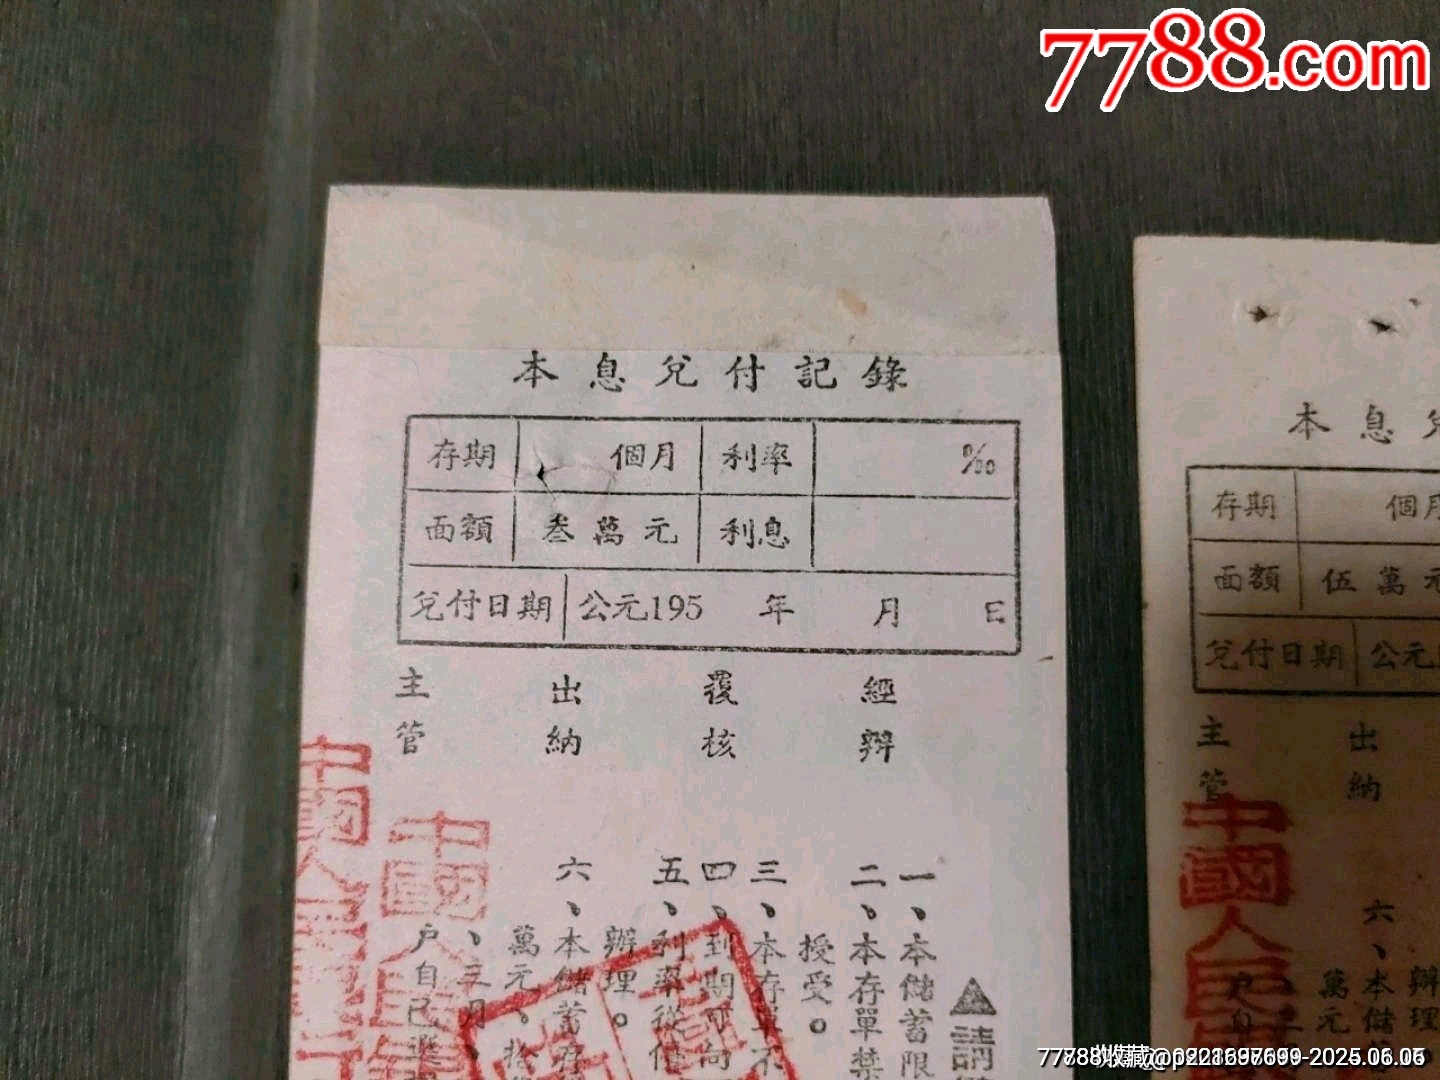 7788.com
本息兌付記錄
存期 個月 利率 ‰
面額 叁萬元 利息
兌付日期 公元195 年 月 日
主管 出納 覆核 經辦
▲請
一、本儲蓄限
二、本存單禁
授受。
三、本存單不
四、到期可向
五、利率從
辦理。
六、本儲蓄存
萬元。拾
、三月、
戶自己選
中國人民
中國人民
本息兌
存期 個月
面額 伍萬元
兌付日期 公元
主管 出納
辦理
六、本儲
萬元
中國人民